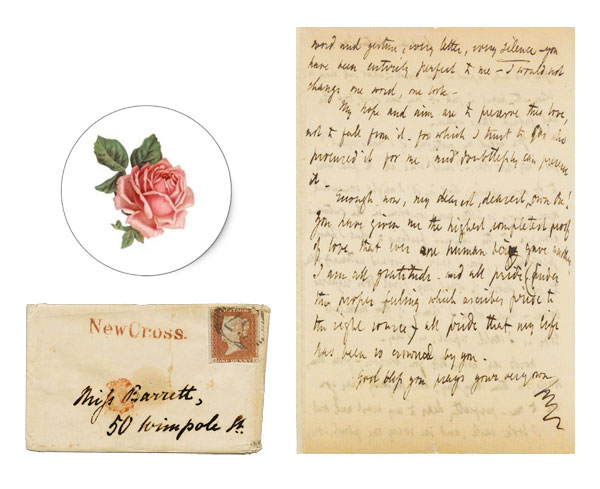 word and gesture, every letter, every silence—you
have been entirely perfect to me—I would not
change one word, one look—
My hope and aim are to preserve this love,
not to fall from it—for which I trust to God who
procured it for me, and doubtlessly can preserve
it—
Enough now, my dearest, dearest, own Ba!
You have given me the highest, completest proof
of love that ever one human being gave another
I am all gratitude—and all pride, (under
the proper feeling which ascribes pride to
the right source—) all pride that my life
has been so crowned by you.
God bless you prays your very own
New Cross.
ONE PENNY
Miss Barrett,
50 Wimpole St.